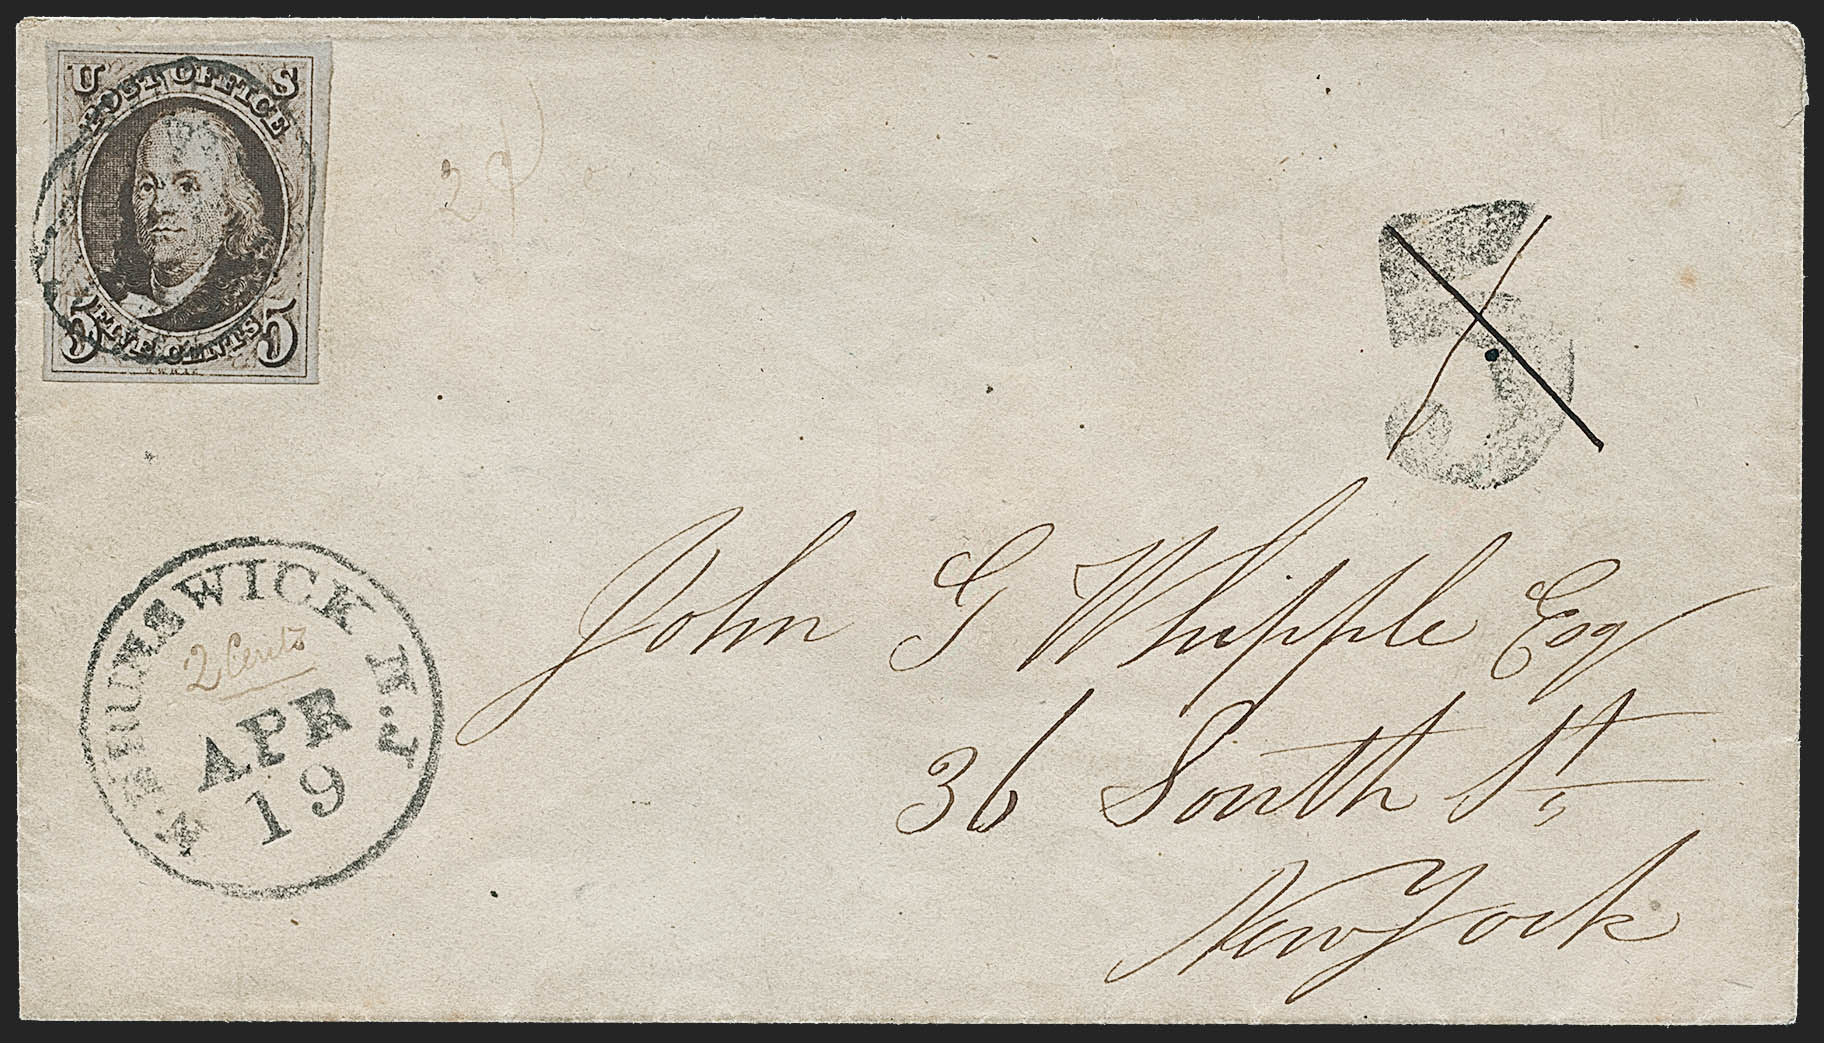 U S
POST OFFICE
5 FIVE CENTS 5
2
5
John G Whipple Esq
36 South St,
New York
N. BRUNSWICK N.J
2 Cents
APR
19